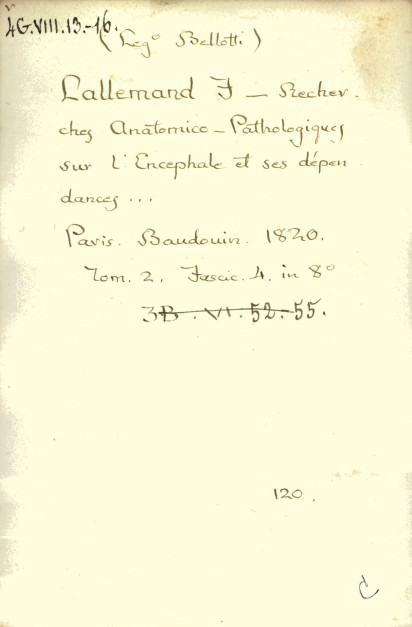 4G.VIII.13.-16.
(Leg° Bellotti)
Lallemand F — Recher-
ches Anatomico-Pathologiques
sur l'Encephale et ses dépen
dances ...
Paris. Baudouin. 1820.
Tom. 2. Fascic. 4. in 8°
3B.VI.52-55.
120.
C